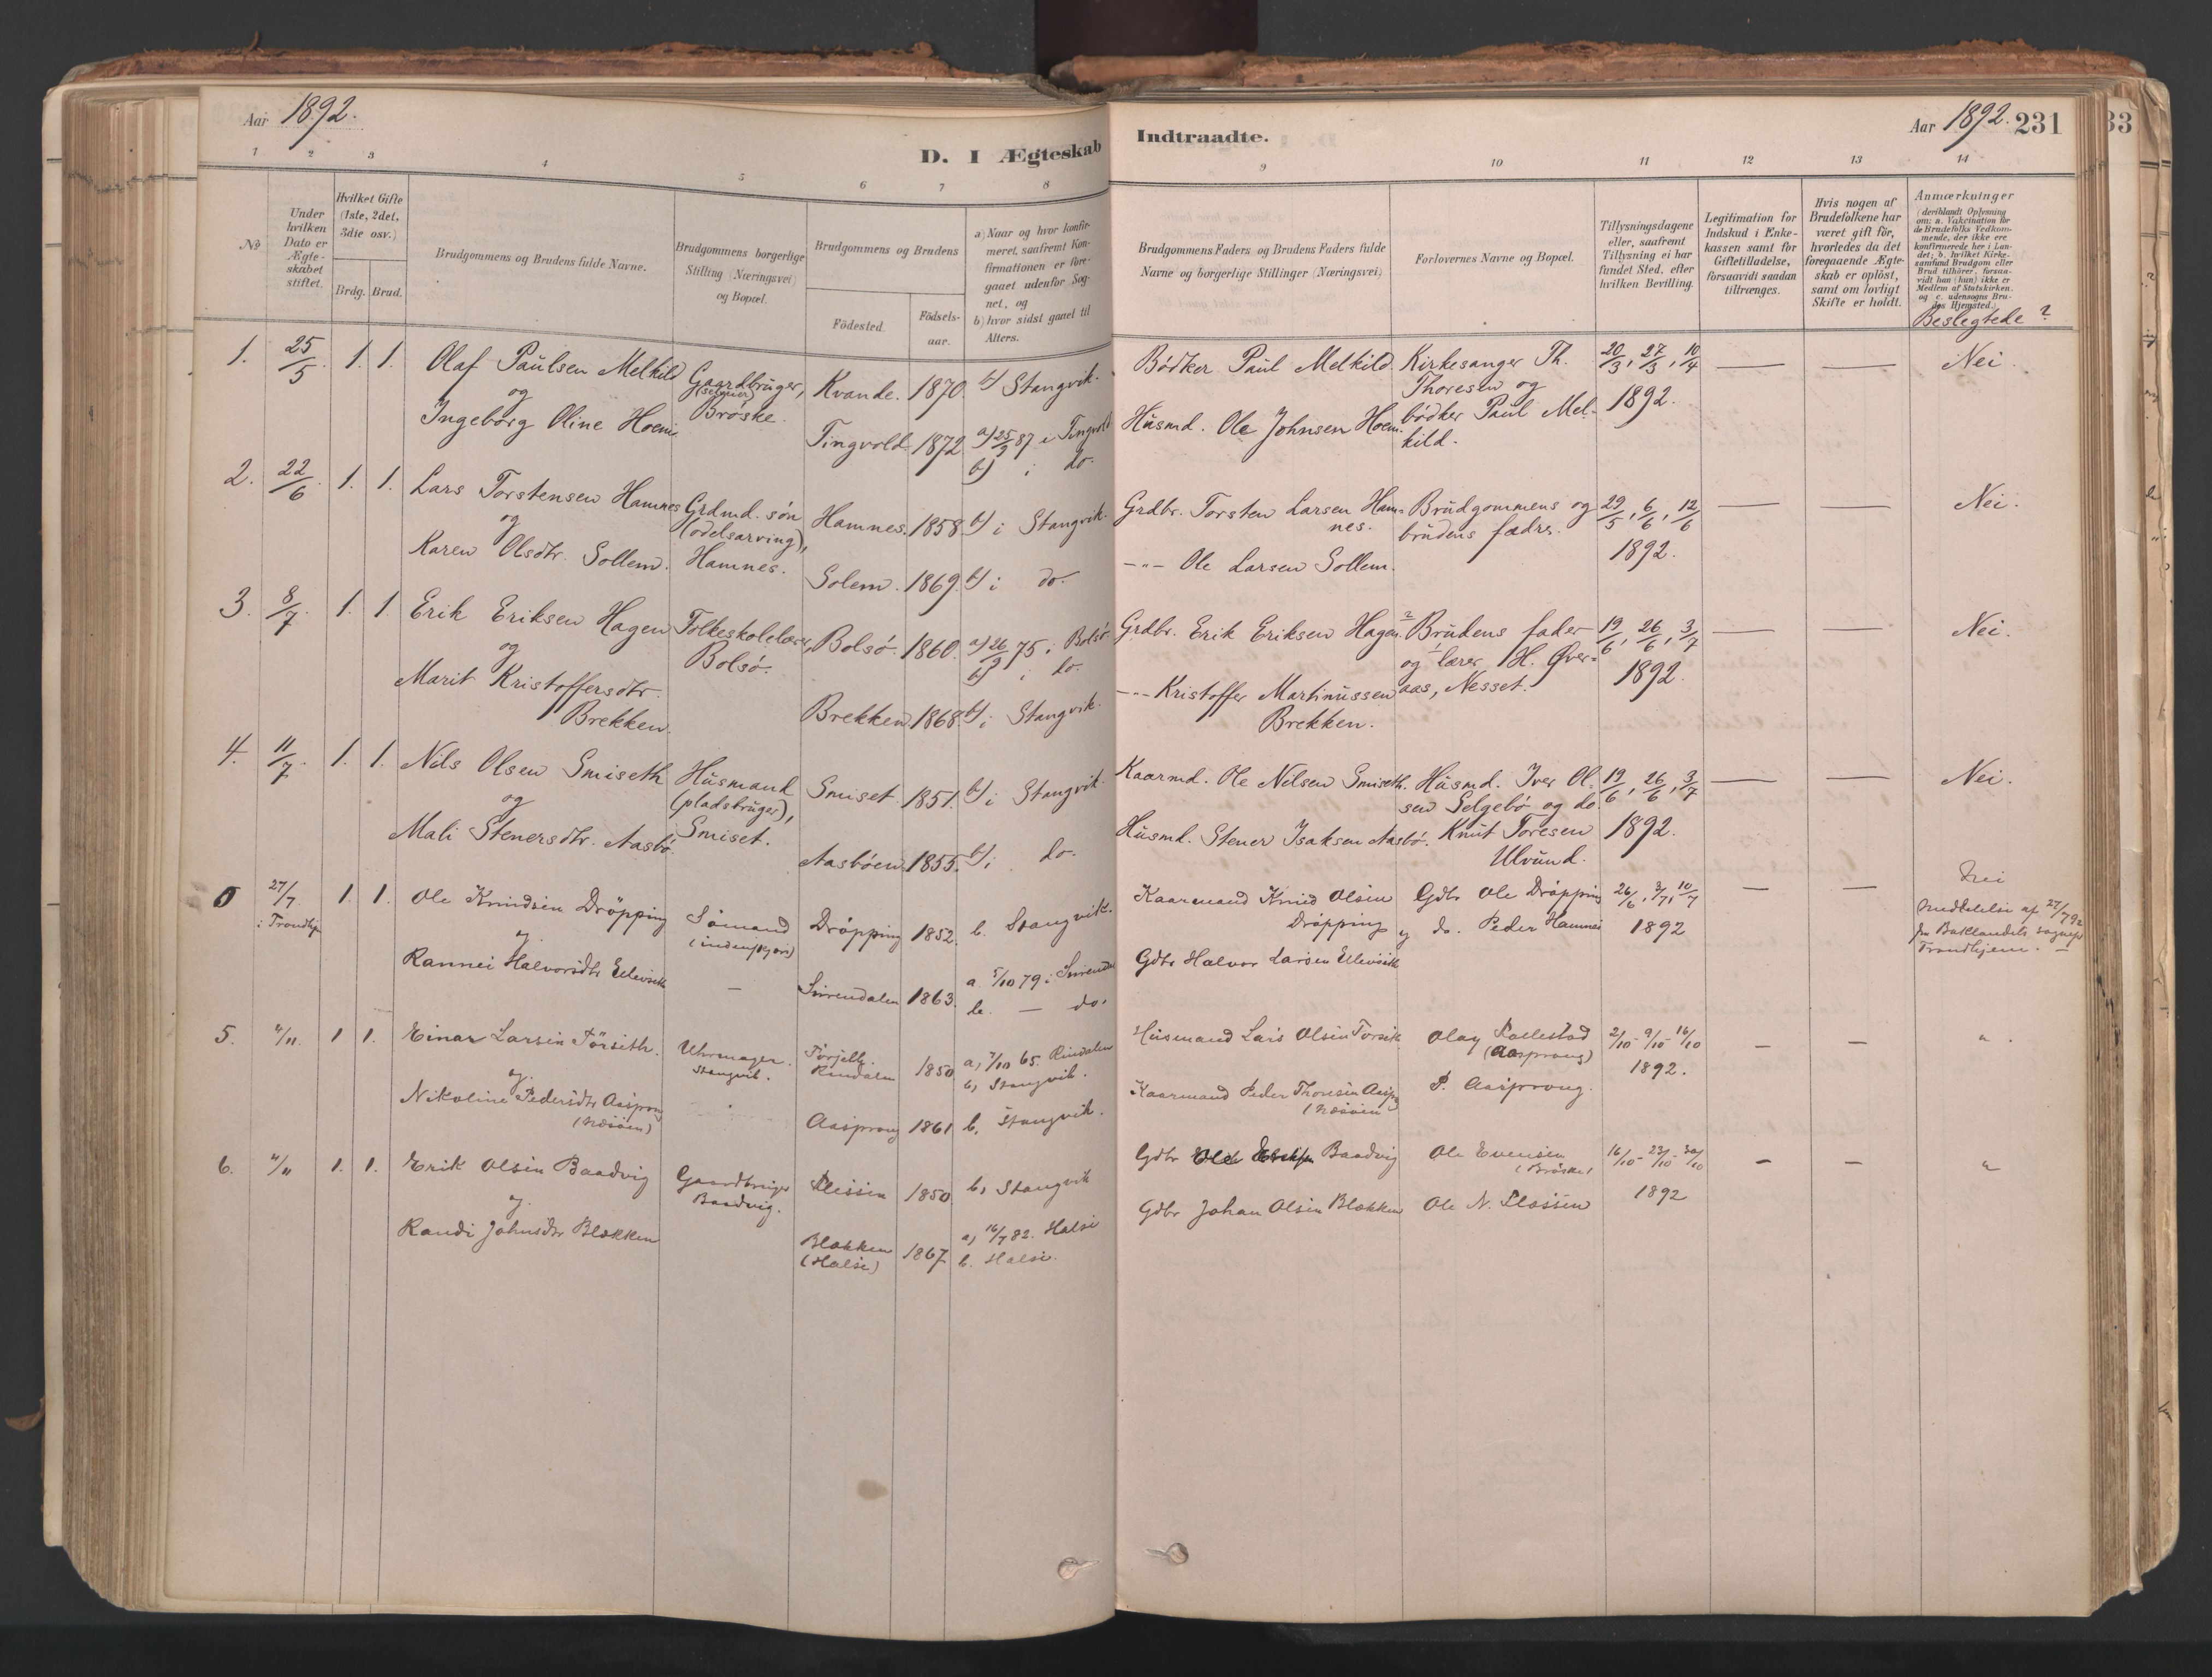 Aar 1892.
D. I Ægteskab
Indtraadte.
Aar 1892. 231
33
1 2 3 4 5 6 7 8 9 10 11 12 13 14
No
Under hvilken Dato er Ægte-skabet stiftet.
Hvilket Gifte (1ste, 2det, 3die osv.)
Brdg. Brud.
Brudgommens og Brudens fulde Navne.
Brudgommens borgerlige Stilling (Næringsvei) og Bopæl.
Brudgommens og Brudens
Födested.
Födsels-aar.
a) Naar og hvor konfir-meret, saafremt Kon-firmationen er fore-gaaet udenfor Sog-net, og
b) hvor sidst gaaet til Alters.
Brudgommens Faders og Brudens Faders fulde Navne og borgerlige Stillinger (Næringsvei)
Forlovernes Navne og Bopæl.
Tillysningsdagene eller, saafremt Tillysning ei har fundet Sted, efter hvilken Bevilling.
Legitimation for Indskud i Enke-kassen samt for Giftetilladelse, forsaavidt saadan tiltrænges.
Hvis nogen af Brudefolkene har været gift för, hvorledes da det foregaaende Ægte-skab er oplöst, samt om lovligt Skifte er holdt.
Anmærkninger
(deriblandt Oplysning om: a. Vakcination for de Brudefolks Vedkom-mende, der ikke ere konfirmerede her i Lan-det; b. hvilket Kirke-samfund Brudgom eller Brud tilhører, forsaa-vidt han (hun) ikke er Medlem af Statskirken, og c. udensogns Bru-des Hjemsted.)
Beslegtede?
1. 25/5. 1. 1. Olaf Paulsen Melkild
og
Ingeborg Oline Hoem
Gaardbruger, (selveier) Bröske.
Kvande. 1870. b) Stangvik.
Tingvold 1872 a) 25/9 87 i Tingvold
b) i do.
Bödker Paul Melkild.
Husmd. Ole Johnsen Hoem.
Kirkesanger Th. Thoresen og bödker Paul Mel-kild.
20/3, 27/3, 10/4 1892.
— — Nei.
2. 22/6. 1. 1. Lars Torstensen Hamnes
og
Karen Olsdtr. Sollem.
Grdmd. sön (odelsarving), Hamnes.
Hamnes. 1858. b) i Stangvik.
Solem. 1869. b) i do.
Grdbr. Torsten Larsen Ham-nes.
-"- Ole Larsen Sollem.
Brudgommens og brudens fædre.
29/5, 6/6, 12/6 1892.
— — Nei.
3. 8/7. 1. 1. Erik Eriksen Hagen
og
Marit Kristoffersdtr. Brekken.
Folkeskolelærer, Bolsö.
Bolsö. 1860. a) 26/9 75 i Bolsö
b) i do.
Brekken 1868. b) i Stangvik.
Grdbr. Erik Eriksen Hagen.
-"- Kristoffer Martinussen Brekken.
Brudens fader og lærer H. Øver-aas, Nesset.
19/6, 26/6, 3/7 1892.
— — Nei.
4. 11/7 1. 1. Nils Olsen Smiseth
og
Mali Stenersdtr. Aasbö.
Husmand (pladsbruger), Smiset.
Smiset. 1851. b) i Stangvik.
Aasböen 1855. b) i do.
Kaarmd. Ole Nilsen Smiseth.
Husmd. Stener Isaksen Aasbö.
Husmd. Iver Ol-sen Selgebö og do. Knut Toresen Ulvund.
19/6, 26/6, 3/7 1892.
— — Nei.
0 27/7 i Trondhj 1. 1. Ole Knudsen Dröpping
og
Rannei Halvorsdtr Ellevseth
Sömand
—
Dröpping 1852. b. Stangvik.
Surendalen 1863. a. 5/10 79 i Surendal
b. — do.
Kaarmand Knud Olsen Dröpping
Gdbr Halvor Larsen Ellevseth
Gdbr Ole Dröpping
og do. Peder Hamnes
26/6, 3/7, 10/7 1892
— — Nei
Meddelelse af 27/7 92 fra Baklandets sognepr Trondhjem. —
5. 4/11 1 1. Einar Larsen Törseth.
og
Nikoline Pedersdtr Aasprong
Uhrmager. Stangvik.
Rindalen 1850 a, 7/10 65. Rindalen
b, Stangvik.
Aasprong 1861 b. Stangvik.
Husmand Lars Olsen Torseth
Kaarmand Peder Thoresen Aaspr
Olaf (Aasprong)
P. Aasprong.
2/10 - 9/10 - 16/10 1892.
— — "
6. 4/11 1. 1. Erik Olsen Baadvig
og
Randi Johnsdtr Blekken
Gaardbruger Baadvig.
1850 b, Stangvik
Blekken (Halse) 1867 a, 16/7 82. Halse
b. Halse.
Gdbr Ole Baadvig
Gdbr Johan Olsen Blekken
Ole Evensen (Bröske)
Ole N.
16/10 - 23/10 - 30/10 1892
— — "